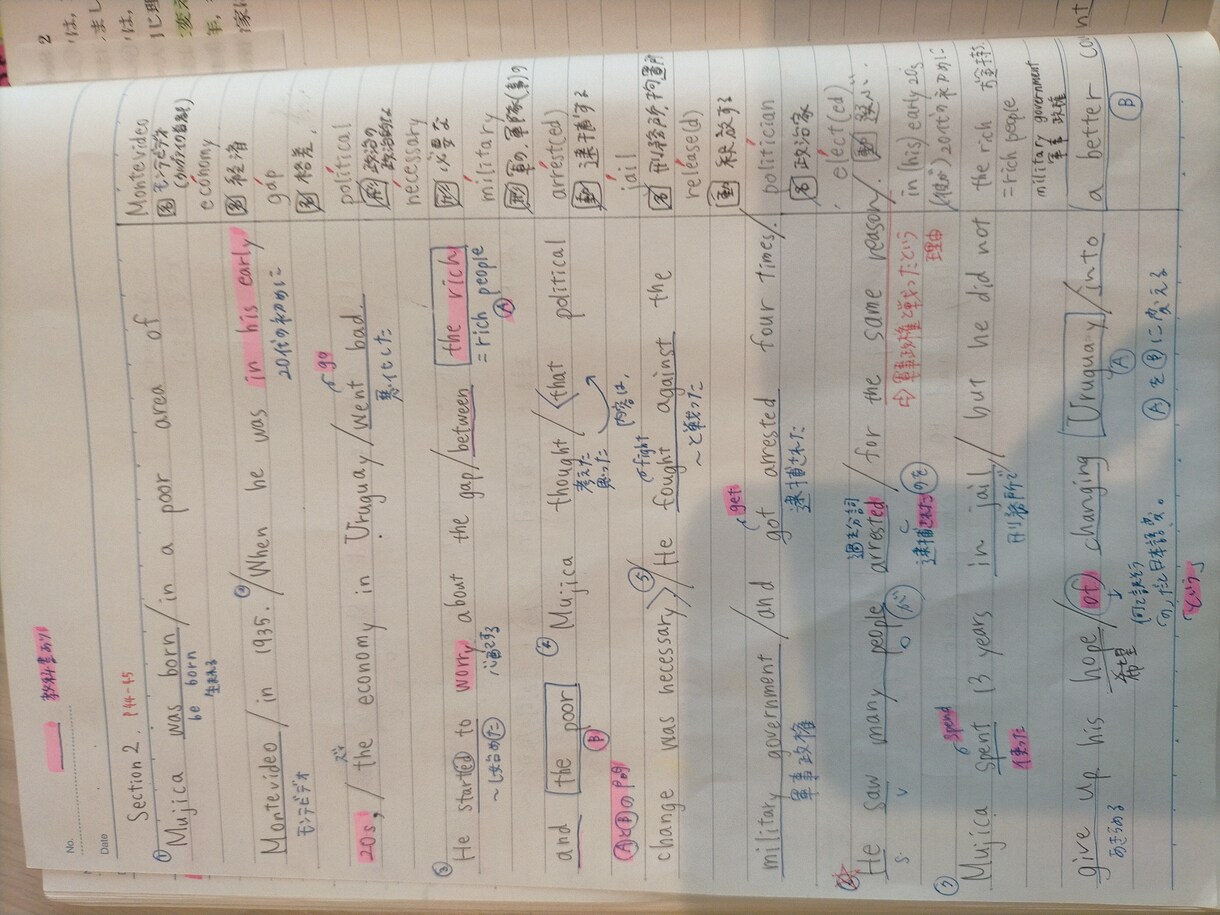 No.
Date
教科書あり
Section 2. P44-45
① Mujica was born / in a poor area of
be born
生まれる
Montevideo / in 1935. ② / When he was in his early
モンテビデオ
20代の初めに
20s, / the economy in Uruguay / went bad.
go
悪化した
③ He started to worry about the gap / between the rich
〜し始めた
心配する
= rich people
Ⓐ
and the poor. ④ Mujica thought / that political
Ⓑ
考えた
思った
内容は、
ⒶとⒷの間
change was necessary. ⑤ He fought against the
fight
〜と戦った
military government / and got arrested four times /.
軍事政権
get
逮捕された
He saw many people arrested / for the same reason /.
S V O
が
過去分詞
逮捕されたのを
⇨軍事政権と戦ったという
理由
⑦ Mujica spent 13 years in jail / but he did not
spend
使った
刑務所で
give up his hope / of changing Uruguay / into a better count
あきらめる
希望
という
Ⓐ
Ⓑ
ⒶをⒷに変える
Montevideo
名 モンテビデオ
economy
名 経済
gap
名 格差
political
形 政治の
政治的な
necessary
形 必要な
military
形 軍の、軍隊(事)の
arrest(ed)
動 逮捕する
jail
名 刑務所、拘置所
release(d)
動 釈放する
politician
名 政治家
elect(ed)
動 選ぶ
in (his) early 20s
(彼が) 20代の初めに
the rich お金持ち
= rich people
military government
軍事 政権
2